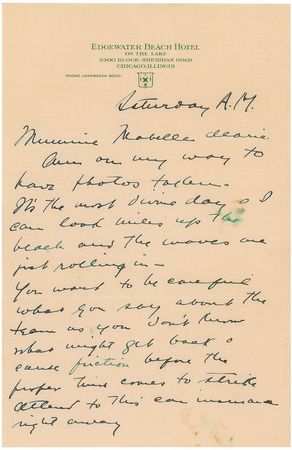 EDGEWATER BEACH HOTEL
ON THE LAKE
5300 BLOCK - SHERIDAN ROAD
CHICAGO, ILLINOIS
PHONE LONGBEACH 6000
Saturday A.M.
Mabelle dearie
Am on my way to
have photos taken -
It's the most divine day & I
can look miles up the
beach and the waves are
just rolling in -
You want to be careful
what you say about the
team as you don't know
what might get back &
cause friction before the
proper time comes to strike
Attend to this car insurance
right away